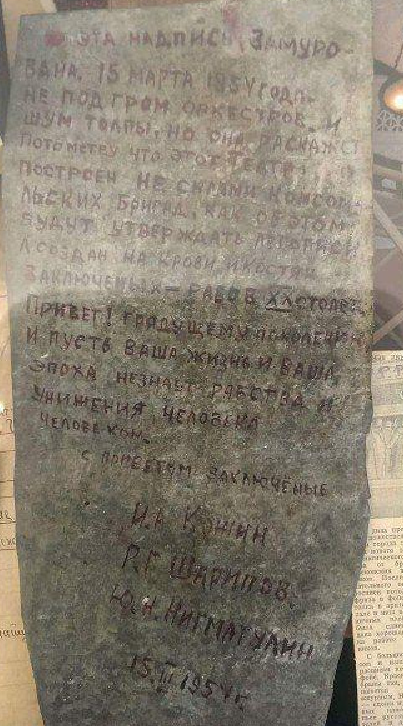 ЭТА НАДПИСЬ ЗАМУРО-
ВАНА, 15 МАРТА 1954 ГОДА
НЕ ПОД ГРОМ ОРКЕСТРОВ И
ШУМ ТОЛПЫ, НО ОНА РАСКАЖЕТ
ПОТОМСТВУ ЧТО ЭТОТ ТЕАТР
ПОСТРОЕН НЕ СИЛАМИ КОМСОМО-
ЛЬСКИХ БРИГАД, КАК ОБ ЭТОМ
БУДУТ УТВЕРЖДАТЬ ЛЕТОПИСИ
А СОЗДАН НА КРОВИ И КОСТЯХ
ЗАКЛЮЧЕНЫХ — РАБОВ XX СТОЛЕТ
ПРИВЕТ! ГРЯДУЩЕМУ ПОКОЛЕНИЮ
И ПУСТЬ ВАША ЖИЗНЬ И ВАША
ЭПОХА НЕЗНАЕТ РАБСТВА И
УНИЖЕНИЯ, ЧЕЛОВЕКА
ЧЕЛОВЕКОМ.
С ПРИВЕТОМ ЗАКЛЮЧЁНЫЕ
КОЖИН
Р.Г. ШАРИПОВ
Ю.Н. НИГМАТУЛИН
15.III 1954 г.